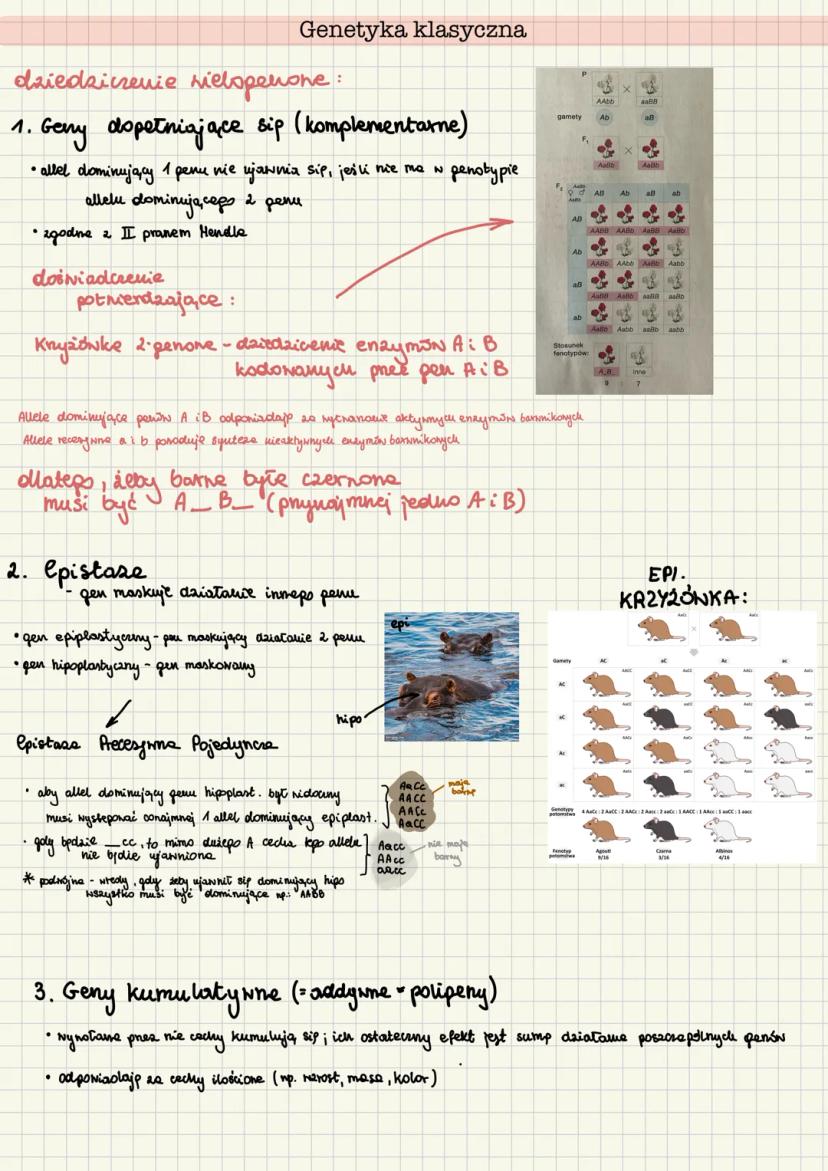 Genetyka klasyczna
dziedziczenie wielogenowe:
1. Geny dopełniające się (komplementarne)
• allel dominujący 1 genu nie ujawnia się, jeśli nie ma w genotypie
allelu dominującego 2 genu
• zgodne z II prawem Mendla
doświadczenie
potwierdzające:
Krzyżówka 2-genowa - dziedziczenie enzymów A i B
kodowanych przez gen A i B
Allele dominujące genów A i B odpowiadają za wytwarzanie aktywnych enzymów barwnikowych
Allele recesywne a i b powodują syntezę nieaktywnych enzymów barwnikowych
dlatego, żeby barwa była czerwona
musi być A_B_ (przynajmniej jedno A i B)
P
AAbb × aaBB
gamety Ab aB
F₁
AaBb × AaBb
F₂
♀ ♂ AaBb AB Ab aB ab
AaBb
AB
AABB AABb AaBB AaBb
Ab
AABb AAbb AaBb Aabb
aB
AaBB AaBb aaBB aaBb
ab
AaBb Aabb aaBb aabb
Stosunek
fenotypów:
A_B_ inne
9 : 7
2. Epistaza
- gen maskuje działanie innego genu
• gen epiplastyczny - gen maskujący działanie 2 genu
• gen hipoplastyczny - gen maskowany
epi
hipo
Epistaza Recesywna Pojedyncza
• aby allel dominujący genu hipoplast. był widoczny
musi występować conajmniej 1 allel dominujący epiplast.
AaCc
AACC
AACc
AaCC
mają
barwę
• gdy będzie __cc, to mimo dużego A cecha tego allelu
nie będzie ujawniona
Aacc
AAcc
aacc
nie mają
barwy
* podwójna - wtedy, gdy żeby ujawnił się dominujący hipo
wszystko musi być dominujące np.: AABB
EPI.
KRZYŻÓWKA:
AaCc × AaCc
Gamety AC aC Ac ac
AC AACC AaCC AACc AaCc
aC AaCC aaCC AaCc aaCc
Ac AACc AaCc AAcc Aacc
ac AaCc aaCc Aacc aacc
Genotypy
potomstwa
4 AaCc : 2 AaCC : 2 AACc : 2 Aacc : 2 aaCc : 1 AACC : 1 AAcc : 1 aaCC : 1 aacc
Fenotyp
potomstwa
Agouti Czarna Albinos
9/16 3/16 4/16
3. Geny kumulatywne (= addywne = poligeny)
• wywołane przez nie cechy kumulują się i ich ostateczny efekt jest sumą działania poszczególnych genów
• odpowiadają za cechy ilościowe (np. wzrost, masa, kolor)